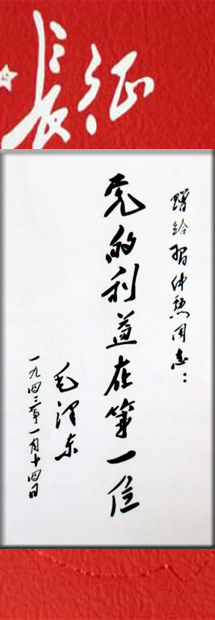 长征
赠给习仲勋同志：
党的利益在第一位
毛泽东
一九四三年一月十四日